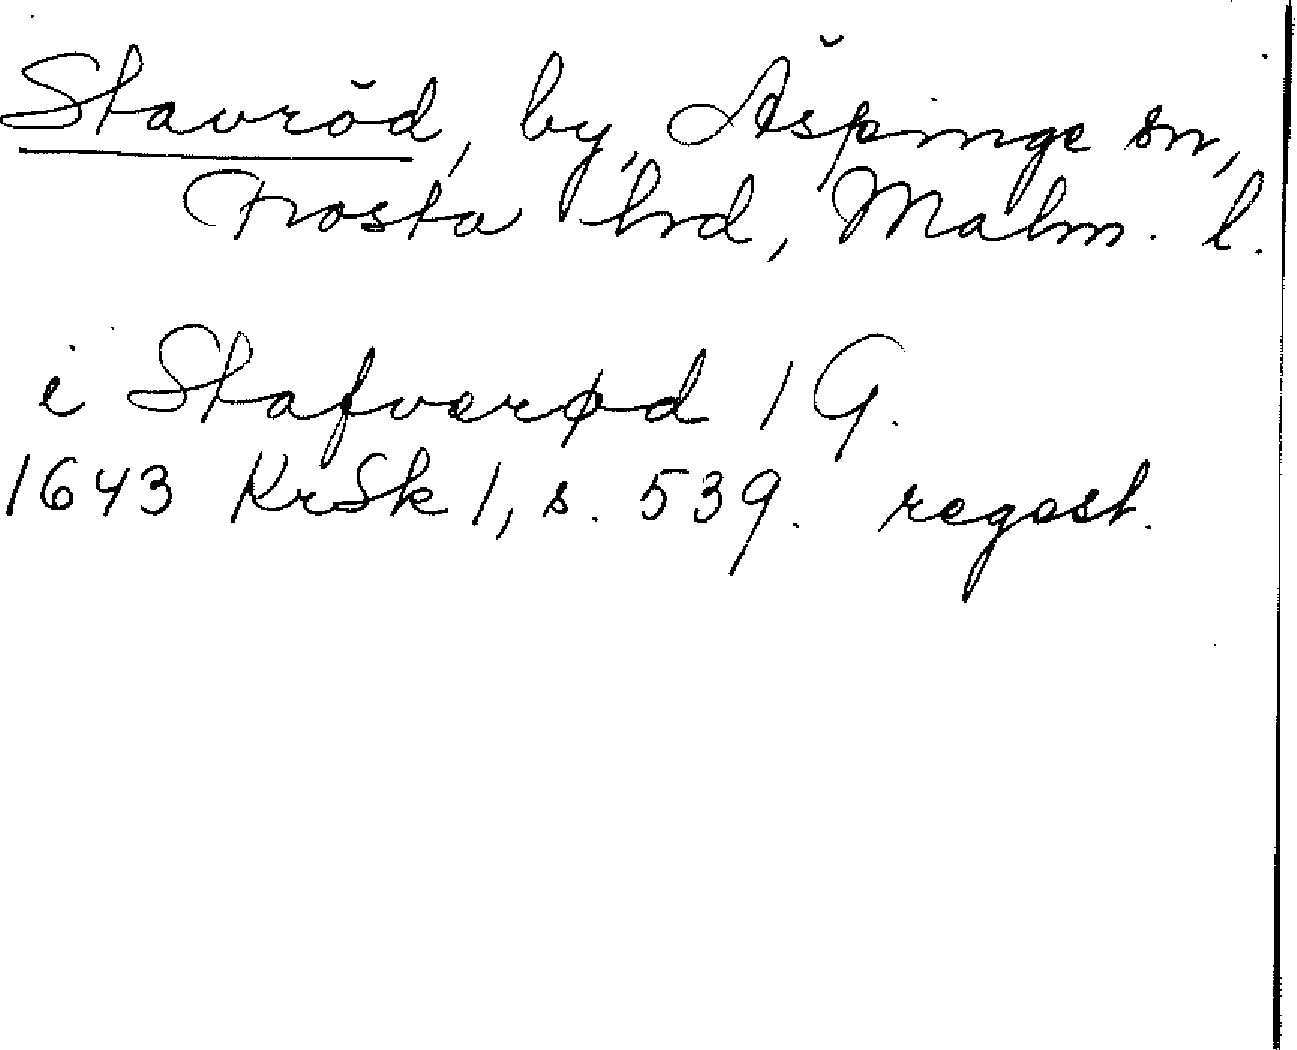 Stavröd, by, Äspinge sn,
Frosta hrd, Malm. l.
i Stafverød 1 G.
1643 KrSk 1, s. 539. regest.